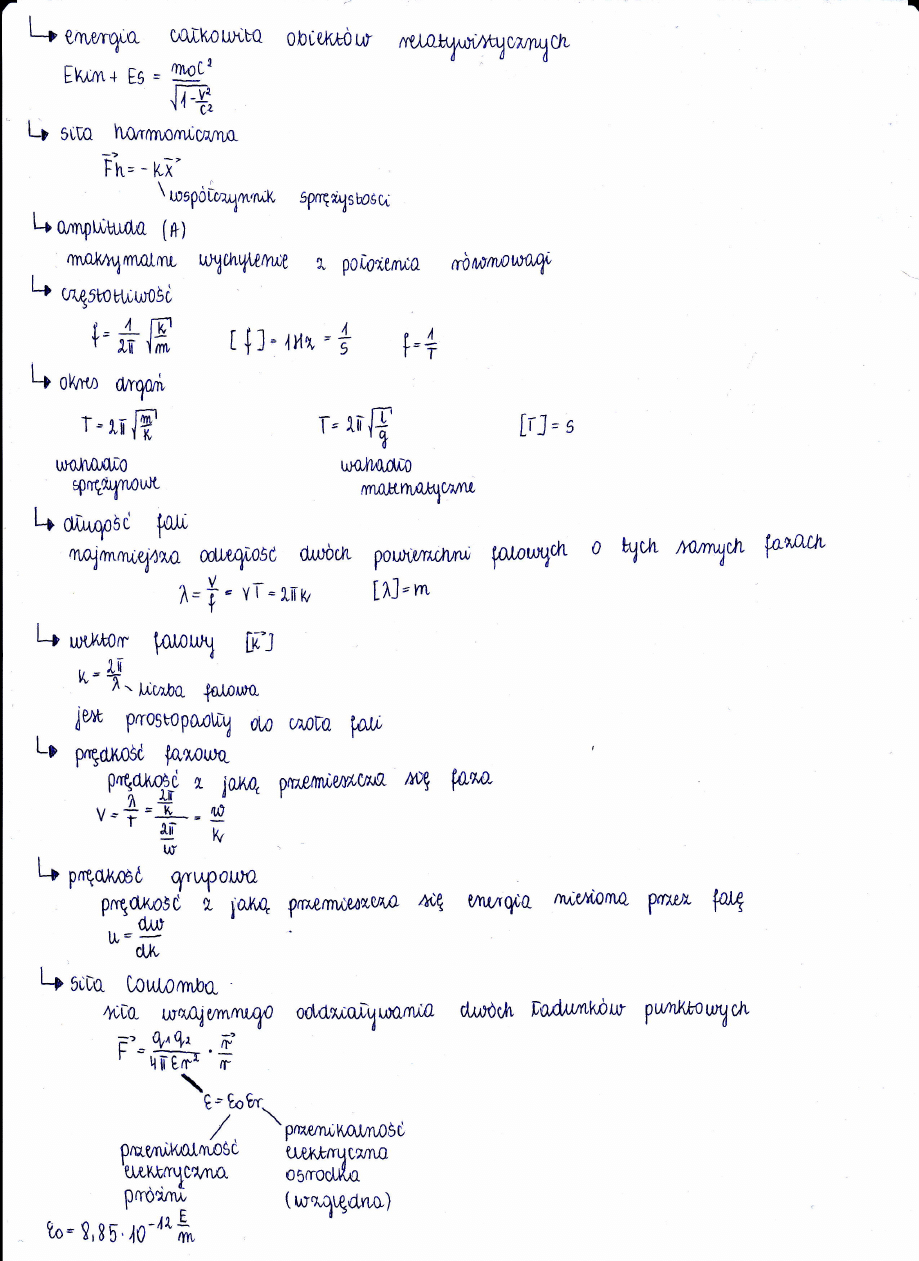 ↳ energia całkowita obiektów relatywistycznych
Ekin + Es = m₀c² / √(1 - v²/c²)
↳ siła harmoniczna
F⃗h = - kx⃗
\ współczynnik sprężystości
↳ amplituda (A)
maksymalne wychylenie z położenia równowagi
↳ częstotliwość
f = 1/2π √(k/m) [f] = 1Hz = 1/s f = 1/T
↳ okres drgań
T = 2π √(m/k) T = 2π √(l/g) [T] = s
wahadło wahadło
sprężynowe matematyczne
↳ długość fali
najmniejsza odległość dwóch powierzchni falowych o tych samych fazach
λ = v/f = vT = 2πk [λ] = m
↳ wektor falowy [k⃗]
k = 2π/λ \ liczba falowa
jest prostopadły do czoła fali
↳ prędkość fazowa
prędkość z jaką przemieszcza się faza
v = λ/T = (2π/k) / (2π/w) = w/k
↳ prędkość grupowa
prędkość z jaką przemieszcza się energia niesiona przez falę
u = dw/dk
↳ siła Coulomba
siła wzajemnego oddziaływania dwóch ładunków punktowych
F⃗ = q₁q₂ / 4πεr² · r⃗/r
ε = ε₀εr
przenikalność elektryczna próżni
przenikalność elektryczna osrodka (względna)
ε₀ = 8,85 · 10⁻¹² E/m